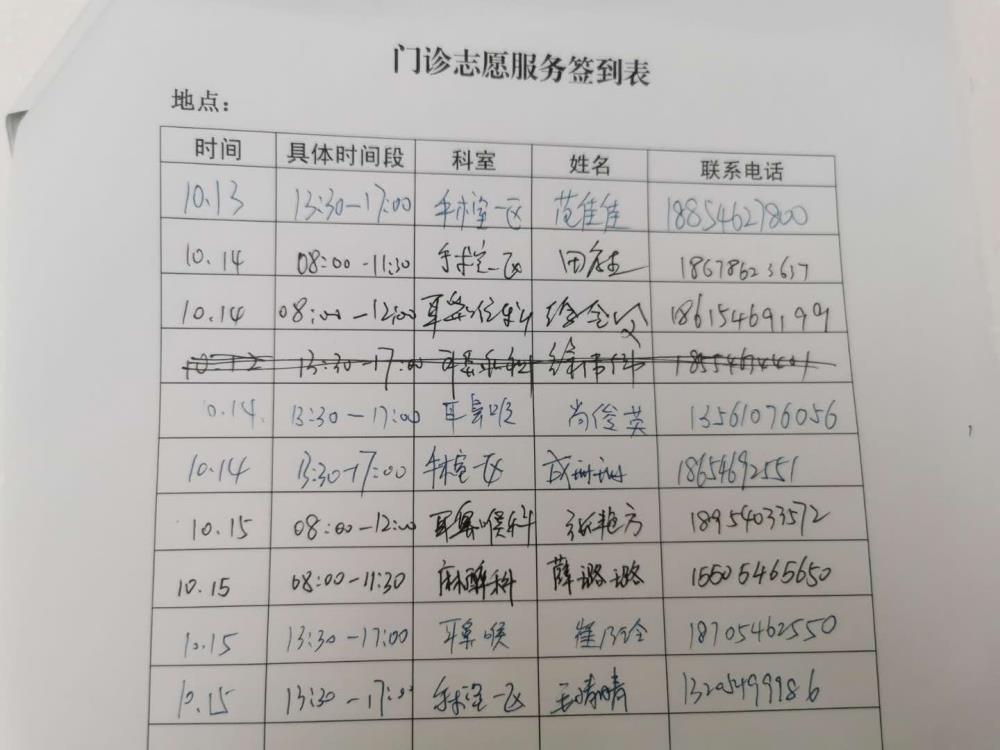 门诊志愿服务签到表
地点：
时间 具体时间段 科室 姓名 联系电话
10.13 13:30-17:00 手术室一区 范佳佳 18854627800
10.14 08:00-11:30 手术室一区 田 18678623637
10.14 08:00-12:00 耳鼻 徐 18615469199
13:30-17:00
10.14 13:30-17:00 耳鼻喉 尚俊英 13561076056
10.14 13:30-17:00 手术室一区 成珊珊 18654692551
10.15 08:00-12:00 耳鼻喉科 张艳方 18954033572
10.15 08:00-11:30 麻醉科 薛璐璐 15505465650
10.15 13:30-17:00 耳鼻喉 崔 18705462550
10.15 13:30-17:00 手术室一区 王晴晴 13205499986